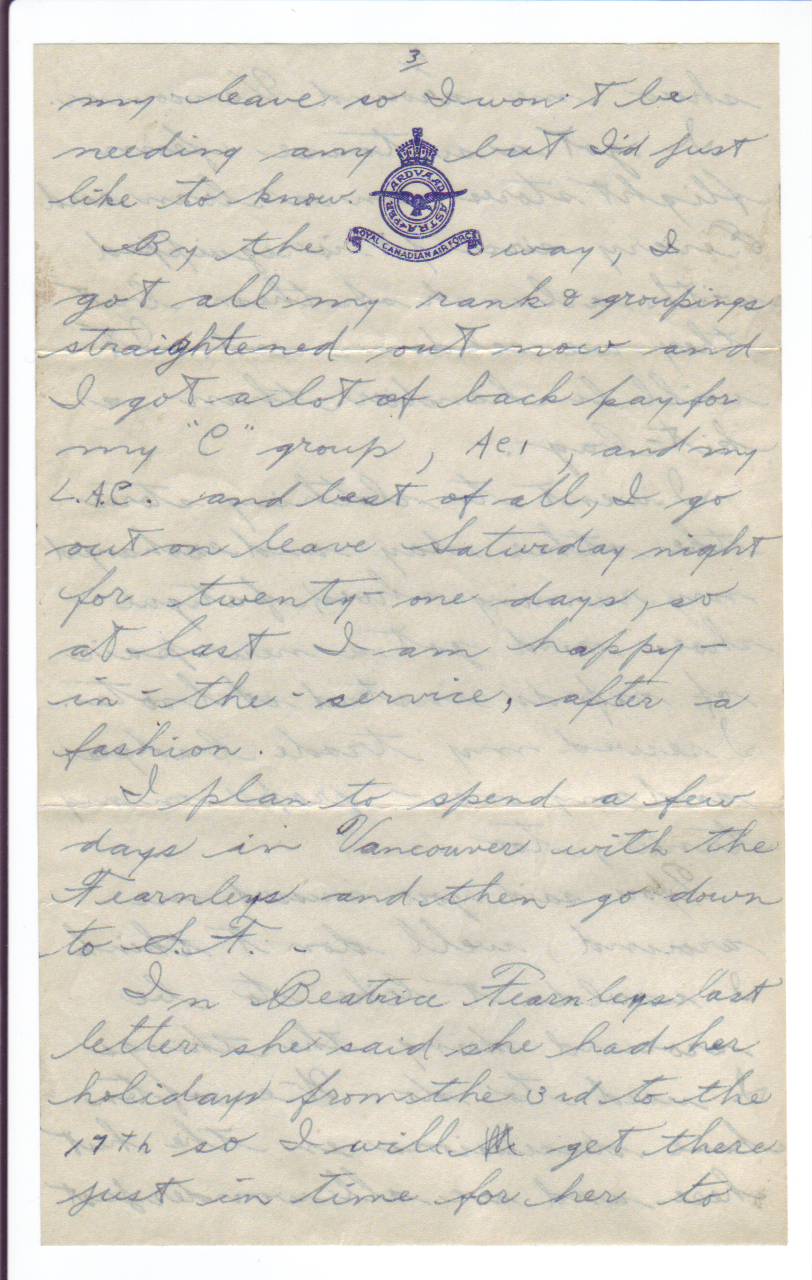 3
my leave so I won't be
needing any but I'd just
like to know.
PER ARDVA AD ASTRA
ROYAL CANADIAN AIR FORCE
By the way, I
got all my rank & groupings
straightened out now and
I got a lot of back pay for
my "C" group, AC1, and my
L.A.C. and best of all, I go
out on leave Saturday night
for twenty-one days, so
at last I am happy-
in-the-service, after a
fashion.
I plan to spend a few
days in Vancouver with the
Fearnleys and then go down
to S.F. -
In Beatrice Fearnleys last
letter she said she had her
holidays from the 3rd to the
17th so I will get there
just in time for her to